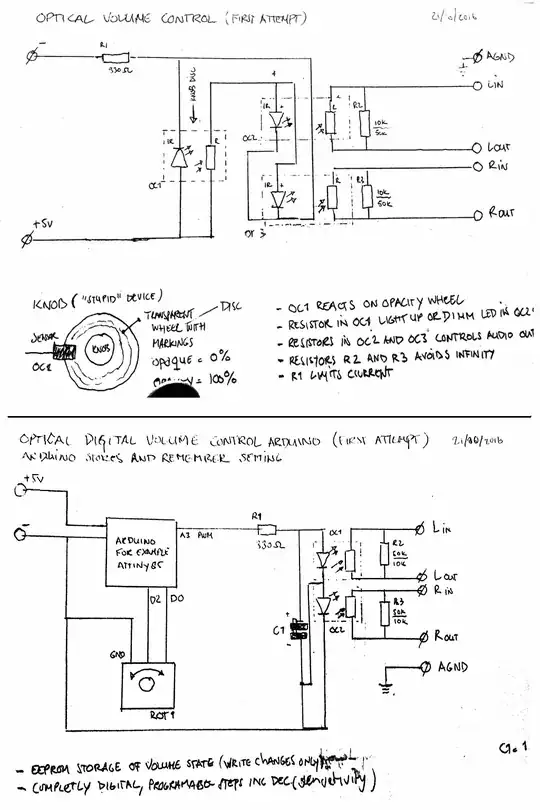 OPTICAL VOLUME CONTROL (FIRST ATTEMPT) 21/10/2016
-
R1
330Ω
KNOB DISC
AGND
LIN
IR
R
R2
10k
50k
OC2
LOUT
RIN
IR
R
OC1
IR
R
R3
10k
50k
ROUT
+5V
KNOB ("STUPID" DEVICE)
DISC
TRANSPARENT
WHEEL WITH
MARKINGS
SENSOR
OC1
KNOB
OPAQUE = 0%
= 100%
- OC1 REACTS ON OPACITY WHEEL
- RESISTOR IN OC1 LIGHT UP OR DIMM LED IN OC2
- RESISTORS IN OC2 AND OC3 CONTROLS AUDIO OUT
- RESISTORS R2 AND R3 AVOIDS INFINITY
- R1 LIMITS CURRENT
OPTICAL DIGITAL VOLUME CONTROL ARDUINO (FIRST ATTEMPT) 21/10/2016
ARDUINO STORES AND REMEMBER SETTING
+5V
-
ARDUINO
FOR EXAMPLE
ATTINY85
A3 PWM
R1
330Ω
OC1
LIN
R2
50k
10k
LOUT
RIN
D2 D0
R3
50k
10k
C1
+
-
OC2
ROUT
GND
AGND
ROT1
C1. 1
- EEPROM STORAGE OF VOLUME STATE (WRITE CHANGES ONLY)
- COMPLETLY DIGITAL, PROGRAMABLE STEPS INC DEC (sensitivity)